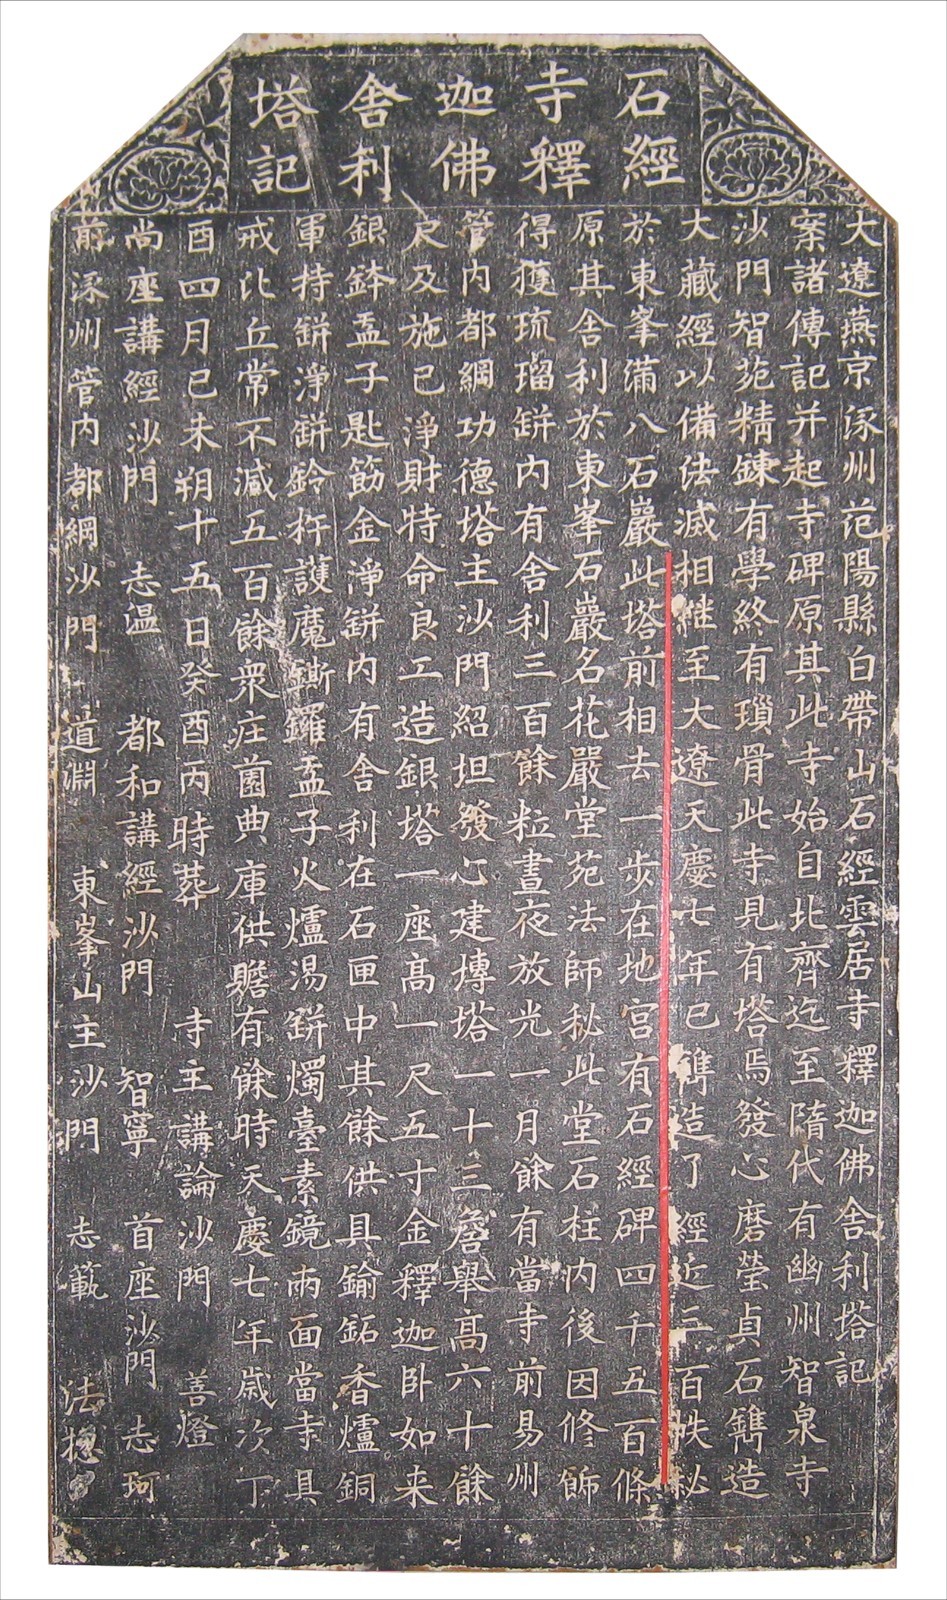 石經寺釋迦佛舍利塔記
大遼燕京涿州范陽縣白帶山石經雲居寺釋迦佛舍利塔記
案諸傳記并起寺碑原其此寺始自北齊迄至隋代有幽州智泉寺
沙門智苑精鍊有學終有瑣骨此寺見有塔焉發心磨瑩貞石鐫造
大藏經以備法滅相継至大遼天慶七年已鐫造了經近三百帙秘
於東峯滿八石巖此塔前相去一步在地宮有石經碑四千五百條
原其舍利於東峯石巖名花嚴堂苑法師秘此堂石柱内後因修飾
得獲琉瑠缾内有舍利三百餘粒晝夜放光一月餘有當寺前易州
管内都綱功德塔主沙門紹坦發心建塼塔一十三簷舉髙六十餘
尺及施已淨財特命良工造銀塔一座髙一尺五寸金釋迦卧如来
銀鉢盂子匙筯金淨缾内有舍利在石匣中其餘供具鍮鉐香爐銅
軍持缾淨缾鈴杵護魔鐁鑼盂子火爐湯缾燭臺素鏡兩面當寺具
戒比丘常不減五百餘衆庄薗典庫供贍有餘時天慶七年歲次丁
酉四月已未朔十五日癸酉丙時葬 寺主講論沙門 善燈
尚座講經沙門 志温 都和講經沙門 智寧 首座沙門 志珂
前涿州管内都綱沙門 道淵 東峯山主沙門 志範 法